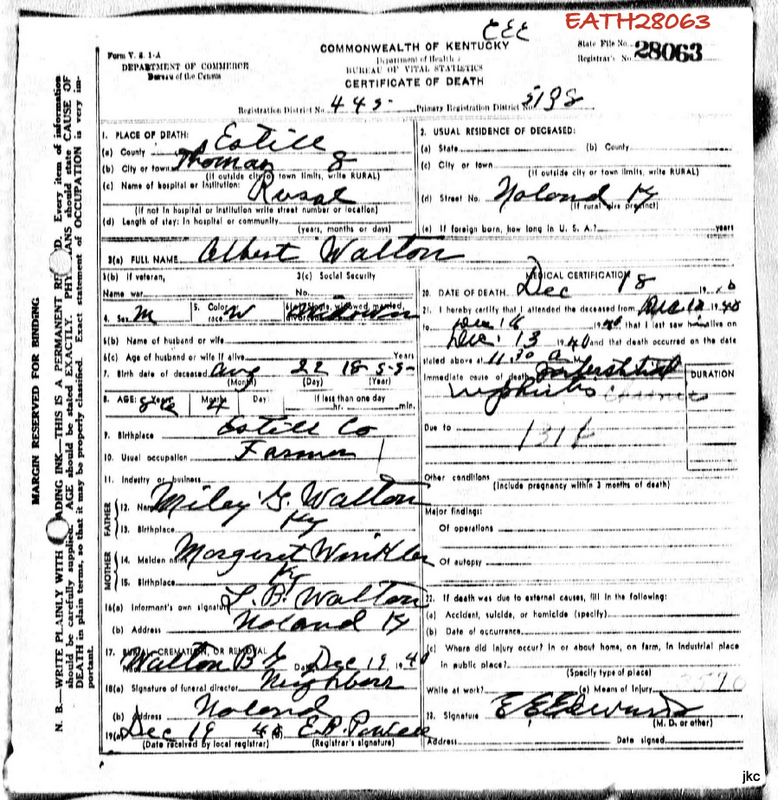 CEE
EATH28063
Form V. S. 1-A
COMMONWEALTH OF KENTUCKY
State File No. 28063
DEPARTMENT OF COMMERCE
Department of Health
Registrar's No.
Bureau of the Census
BUREAU OF VITAL STATISTICS
CERTIFICATE OF DEATH
Registration District No. 445 Primary Registration District No. 5198
1. PLACE OF DEATH:
(a) County Estill
(b) City or town Thomas 8
(If outside city or town limits, write RURAL)
(c) Name of hospital or institution: Rural
(If not in hospital or institution write street number or location)
(d) Length of stay: In hospital or community
(years, months or days)
2. USUAL RESIDENCE OF DECEASED:
(a) State (b) County
(c) City or town
(If outside city or town limits, write RURAL)
(d) Street No. Noland Ky
(If rural give precinct)
(e) If foreign born, how long in U. S. A.? years
3(a) FULL NAME Albert Walton
3(b) If veteran,
Name war
3(c) Social Security
No.
4. Sex M 5. Color race W 6(a) Single, widowed, married, divorced
6(b) Name of husband or wife
6(c) Age of husband or wife if alive Years
7. Birth date of deceased Aug 22 1855
(Month) (Day) (Year)
8. AGE: Years Months 4 Days If less than one day
hr. min.
9. Birthplace Estill Co
10. Usual occupation Farmer
11. Industry or business
FATHER
12. Name Miley G. Walton
13. Birthplace Ky
MOTHER
14. Maiden name Margaret Winkler
15. Birthplace Ky
16(a) Informant's own signature L. B. Walton
(b) Address Noland Ky
17. BURIAL, CREMATION, OR REMOVAL
Walton B G Date Dec 19 1940
18(a) Signature of funeral director Neighbors
(b) Address Noland
19(a) Dec 19 40 (b) E.P. Powell
(Date received by local registrar) (Registrar's signature)
MEDICAL CERTIFICATION
20. DATE OF DEATH Dec 18 19
21. I hereby certify that I attended the deceased from Dec 12 1940
to Dec 16 1940 that I last saw him alive on
Dec. 13 1940 and that death occurred on the date
stated above at 11:30 a M.
Immediate cause of death Interstitial
nephritis
DURATION
Due to
131
Other conditions
(Include pregnancy within 3 months of death)
Major findings:
Of operations
Of autopsy
22. If death was due to external causes, fill in the following:
(a) Accident, suicide, or homicide (specify)
(b) Date of occurrence
(c) Where did injury occur? In or about home, on farm, in industrial place
in public place?
(Specify type of place)
While at work? (e) Means of Injury
23. Signature E E Edwards
(M. D. or other)
Address Date signed
MARGIN RESERVED FOR BINDING
N. B.—WRITE PLAINLY WITH ADING INK—THIS IS A PERMANENT RE D. Every item of information
should be carefully supplied. AGE should be stated EXACTLY. PHY ANS should state CAUSE OF
DEATH in plain terms, so that it may be properly classified. Exact statement of OCCUPATION is very im-
portant.
jkc